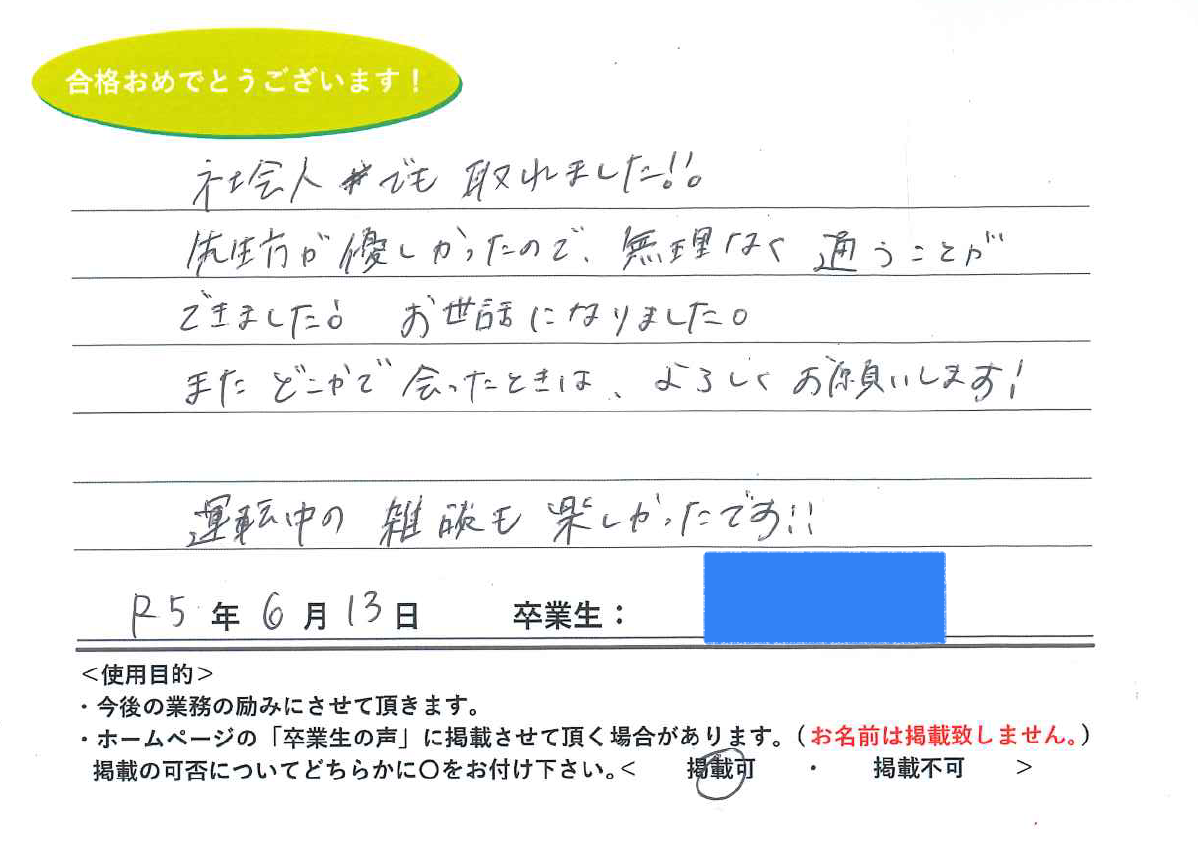 合格おめでとうございます!
社会人でも 取れました!!
先生方が優しかったので、無理なく通うことが
できました! お世話になりました。
またどこかで会ったときは、よろしくお願いします!
運転中の雑談も楽しかったです!!
R5年6月13日 卒業生:
<使用目的>
・今後の業務の励みにさせて頂きます。
・ホームページの「卒業生の声」に掲載させて頂く場合があります。(お名前は掲載致しません。)
掲載の可否についてどちらかに〇をお付け下さい。< 掲載可 ・ 掲載不可 >